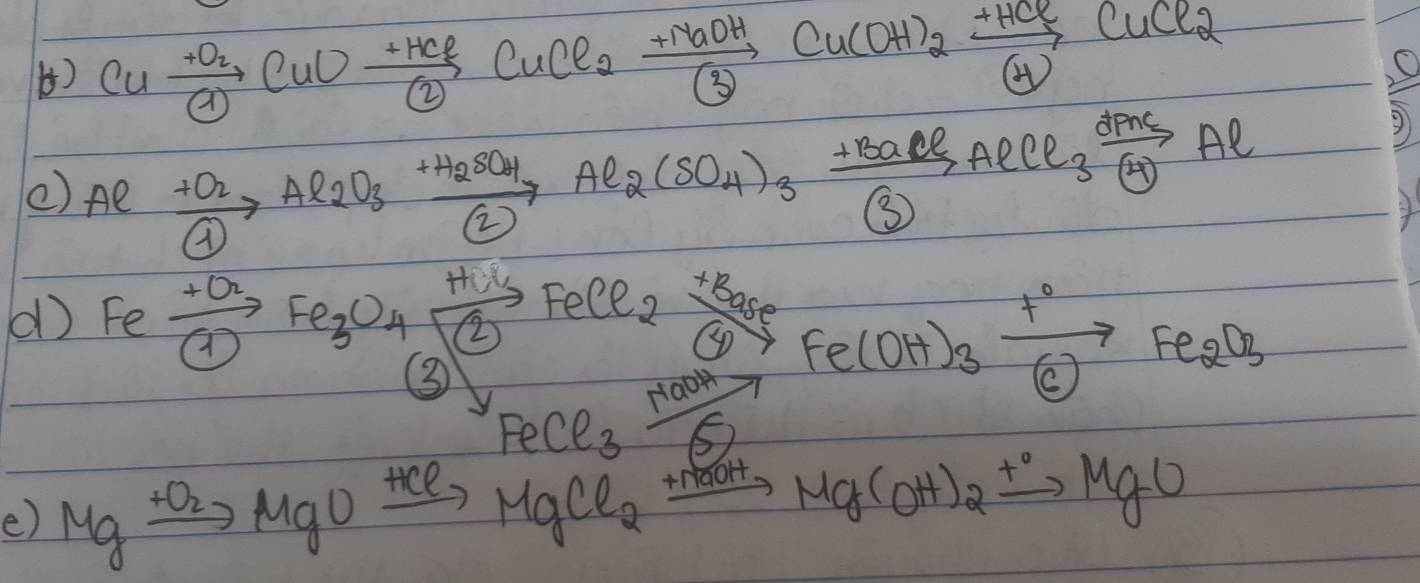 b) Cu +O2 → ① CuO +HCl → ② CuCl2 +NaOH → ③ Cu(OH)2 +HCl → ④ CuCl2
c) Al +O2 → ① Al2O3 +H2SO4 → ② Al2(SO4)3 +BaCl → ③ AlCl3 đpnc → ④ Al
d) Fe +O2 → ① Fe3O4 HCl → ② FeCl2 +Base → ④ Fe(OH)3 t° → ⑥ Fe2O3
③ → FeCl3 NaOH → ⑤
e) Mg +O2 → MgO HCl → MgCl2 +NaOH → Mg(OH)2 t° → MgO